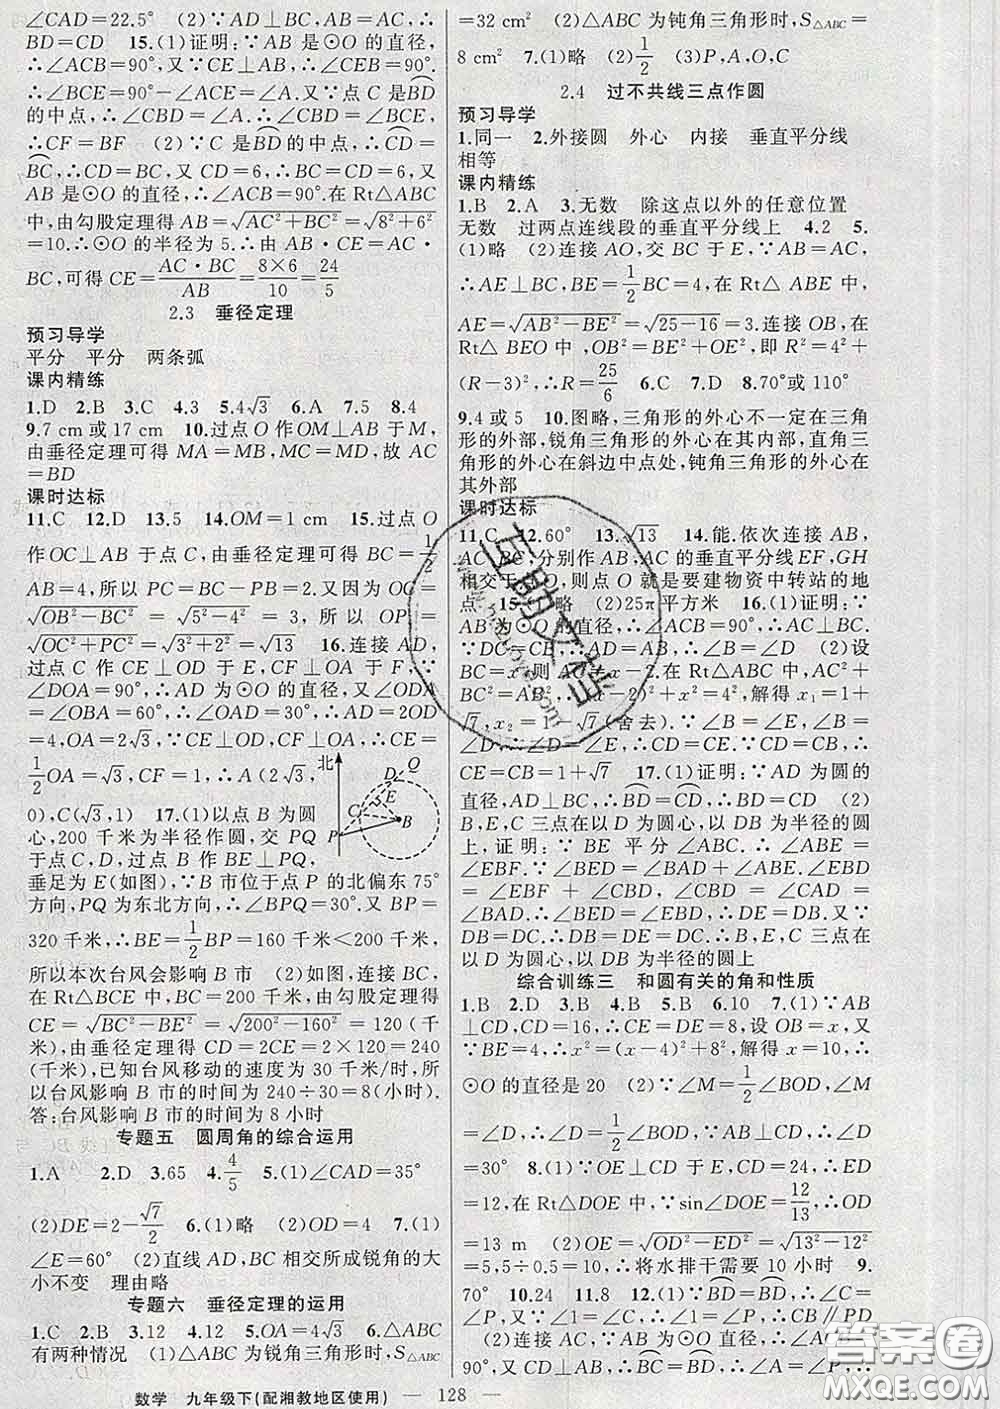 ∠CAD=22.5° 15.(1)证明:∵AB是⊙O的直径,
∴∠ACB=90°,又∵CE⊥AB,∴∠CEB=90°.
∴∠BCE=90°-∠ABC=∠A.又∵点C是BD
的中点,∴∠CBD=∠A.∴∠CBD=∠BCE,
∴CF=BF (2)∵C是BD的中点,∴CD=
BC,∴CD=CB,又∵CD=6,∴BC=CD=6,又∵
AB是⊙O的直径,∴∠ACB=90°.在Rt△ABC
中,由勾股定理得AB=√AC²+BC²=√8²+6²
=10.∴⊙O的半径为5.∴CE·AB=AC·
BC,可得CE=AC·BC/AB=8×6/10=24/5
2.3 垂径定理
预习导学
平分 平分 两条弧
课内精练
1.D 2.B 3.C 4.3 5.4√3 6.A 7.5 8.4
9.7 cm或17 cm 10.过点O作OM⊥AB于M,
由垂径定理可得MA=MB,MC=MD,故AC
=BD
课时达标
11.C 12.D 13.5 14.OM=1 cm 15.过点O
作OC⊥AB于点C,由垂径定理可得BC=1/2
AB=4,所以PC=BC-PB=2.又因为OC=
√OB²-BC²=√5²-4²=3,所以OP=
√OC²+PC²=√3²+2²=√13 16.连接AD,
过点C作CE⊥OD于E,CF⊥OA于F,∵
∠DOA=90°,∴AD为⊙O的直径,又∵∠ODA
=∠OBA=60°,∴∠OAD=30°,∴AD=2OD
=4,OA=2√3,∵CE⊥OD,CF⊥OA,∴CE=
1/2OA=√3,CF=1,∴A(2√3,
0),C(√3,1) 17.(1)以点B为圆
心,200千米为半径作圆,交PQ
于点C,D,过点B作BE⊥PQ,
垂足为E(如图),∵B市位于点P的北偏东75°
方向,PQ为东北方向,∴∠BPQ=30°.又BP=
320千米,∴BE=1/2BP=160千米<200千米,
所以本次台风会影响B市 (2)如图,连接BC,
在Rt△BCE中,BC=200千米,由勾股定理得
CE=√BC²-BE²=√200²-160²=120(千
米),由垂径定理得CD=2CE=2×120=240
(千米),已知台风移动的速度为30千米/时,所
以台风影响B市的时间为240÷30=8(小时).
答:台风影响B市的时间为8小时
北
Q
D
E
C
B
P
专题五 圆周角的综合运用
1.A 2.D 3.65 4.4/5 5.(1)∠CAD=35°
(2)DE=2-√7/2 6.(1)略 (2)OD=4 7.(1)
∠E=60° (2)直线AD,BC相交所成锐角的大
小不变 理由略
专题六 垂径定理的运用
1.C 2.B 3.12 4.12 5.OA=4√3 6.△ABC
有两种情况 (1)△ABC为锐角三角形时,S△ABC
=32 cm² (2)△ABC为钝角三角形时,S△ABC=
8 cm² 7.(1)略 (2)1/2 (3)P,A,O,C
2.4 过不共线三点作圆
预习导学
1.同一 2.外接圆 外心 内接 垂直平分线
相等
课内精练
1.B 2.A 3.无数 除这点以外的任意位置
无数 过两点连线段的垂直平分线上 4.2 5.
(1)略 (2)连接AO,交BC于E,∵AB=AC,
∴AE⊥BC,BE=1/2BC=4,在Rt△ABE中,
AE=√AB²-BE²=√25-16=3.连接OB,在
Rt△BEO中,OB²=BE²+OE²,即R²=4²+
(R-3)²,∴R=25/6 6.C 7.D 8.70°或110°
9.4或5 10.图略,三角形的外心不一定在三角
形的外部,锐角三角形的外心在其内部,直角三
角形的外心在斜边中点处,钝角三角形的外心在
其外部
课时达标
11.C 12.60° 13.√13 14.能.依次连接AB,
AC,BC,分别作AB,AC的垂直平分线EF,GH
相交于点O,则点O就是要建物资中转站的地
点 15.(1)略 (2)25π平方米 16.(1)证明:∵
AB为⊙O的直径,∴∠ACB=90°,∴AC⊥BC.
∵DC=CB,∴AD=AB,∴∠B=∠D (2)设
BC=x,则AC=x-2.在Rt△ABC中,AC²+
BC²=AB²,∴(x-2)²+x²=4²,解得x₁=1+
√7,x₂=1-√7(舍去).∵∠B=∠E,∠B=
∠D,∴∠D=∠E,∴CD=CE.∵CD=CB,∴
CE=CB=1+√7 17.(1)证明:∵AD为圆的
直径,AD⊥BC,∴BD=CD,∴BD=CD (2)
B,E,C三点在以D为圆心,以DB为半径的圆
上,证明:∵BE平分∠ABC.∴∠ABE=
∠EBF.∵∠BED=∠BAD+∠ABE,∠EBD
=∠EBF+∠CBD,∠CBD=∠CAD=
∠BAD.∴∠BED=∠EBD,∴DE=DB.又∵
DB=DC.∴DB=DE=DC.∴B,E,C三点在
以D为圆心,以DB为半径的圆上
综合训练三 和圆有关的角和性质
1.B 2.D 3.B 4.B 5.B 6.10 7.(1)∵AB
⊥CD,CD=16,∴CE=DE=8,设OB=x,又
∵BE=4,∴x²=(x-4)²+8²,解得x=10,∴
⊙O的直径是20 (2)∵∠M=1/2∠BOD,∠M
=∠D,∴∠D=1/2∠BOD,∵AB⊥CD,∴∠D
=30° 8.(1)∵OE⊥CD于E,CD=24,∴ED
=12,在Rt△DOE中,∵sin∠DOE=12/13,∴OD
=13 m (2)OE=√OD²-ED²=√13²-12²
=5,5÷0.5=10,∴将水排干需要10小时 9.
70° 10.24 11.8 12.(1)∵BD=BD,∴∠C=
∠P,又∵∠1=∠C,∴∠1=∠P,∴CB∥PD
(2)连接AC,∵AB为⊙O的直径,∴∠ACB=
90°,又∵CD⊥AB,∴BC=BD,∴∠A=∠P,∴
数学 九年级下(配湘教地区使用) — 128 —
互助文档
答案圈
MXQE.COM